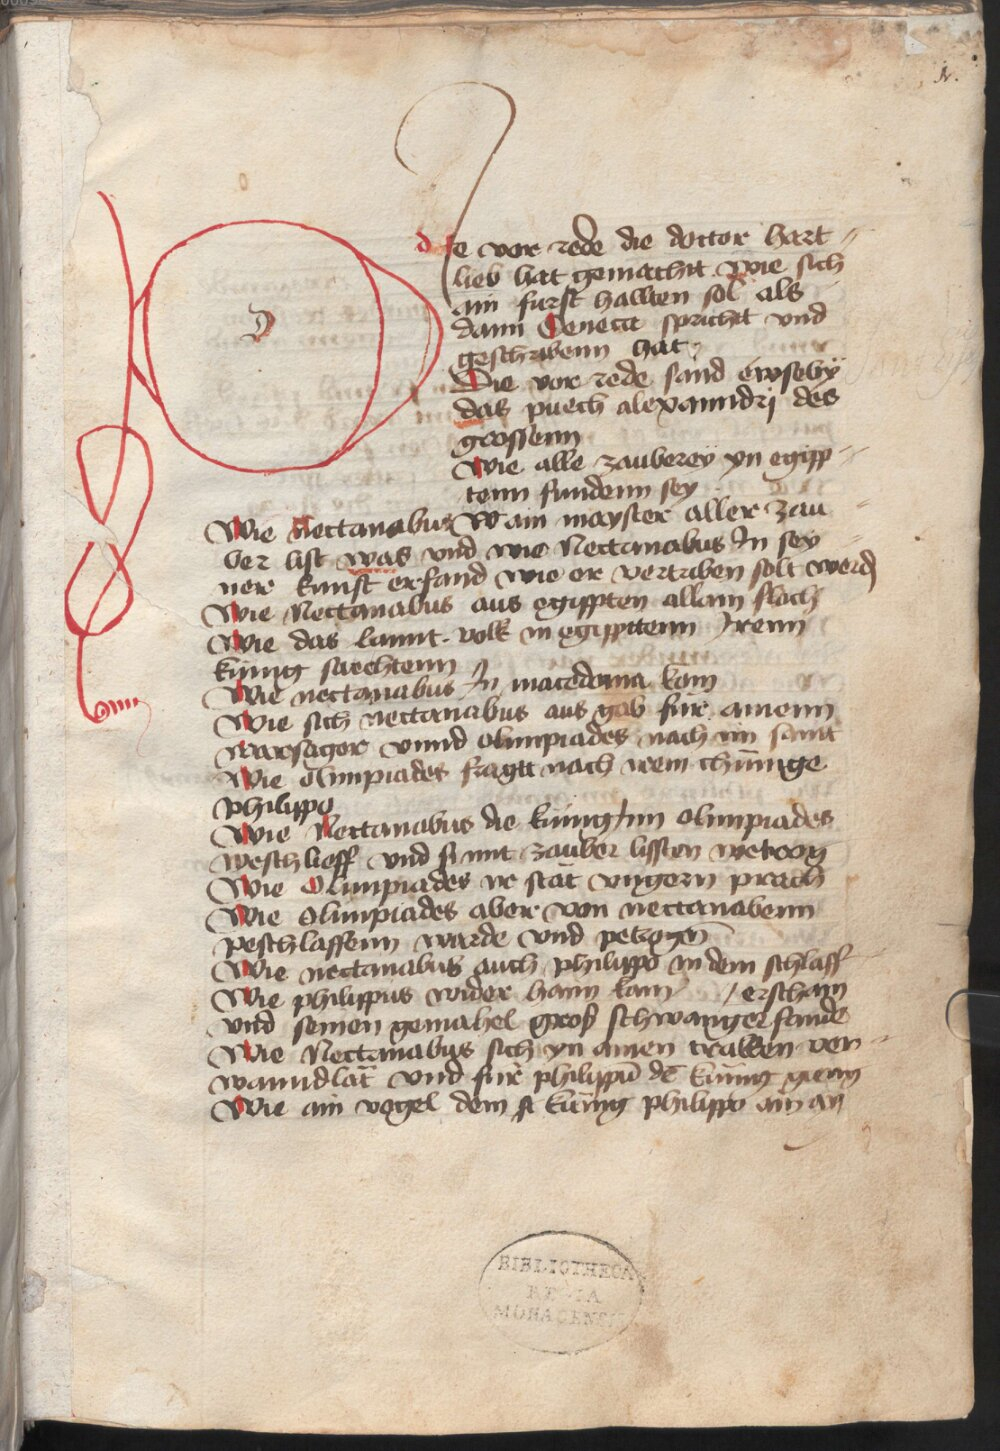 1.
D
die vor rede die doctor hart
lieb hat gemacht wie sich
ain furst hallten sol als
dann Seneca spricht und
geschribenn hat
Die vor rede sand ewseby
das puech alexanndrj des
grossenn
Wie alle zauberey yn egipp
tenn fundenn sey
Wie Nectanabus W ain mayster aller zau
ber list was vnd wie Nectanabus In sey
ner kunst erfand wie er vertriben solt werd
Wie Nectanabus aus egippten allain floch
Wie das lannt volk in egippttenn Irenn
kunig suechtenn
Wie nectanabus In macedonia kam
Wie sich nectanabus aus gab für ainenn
warsager vnnd olimpiades nach im sannt
Wie Olimpiades fragtt nach irem chünige
philippo
Wie Nectanabus die künigInn olimpiades
weschlieff vnd si mit zauber lissten wetrog
Wie Olimpiades ir stat vngern prach
Wie olimpiades aber von nectanabenn
peschlaffenn warde vnd petrogen
Wie nectanabus auch philippo in dem schlaff
Wie philippus wider haim kam / erschain
vnd seinen gemahel gros schwanger fande
Wie Nectanabus sich yn ainen trakken ver
wanndlat vnd für philippū dē künig gieng
Wie ain vogel dem künig philippo ain ay
BIBLIOTHECA
REGIA
MONACENSIS